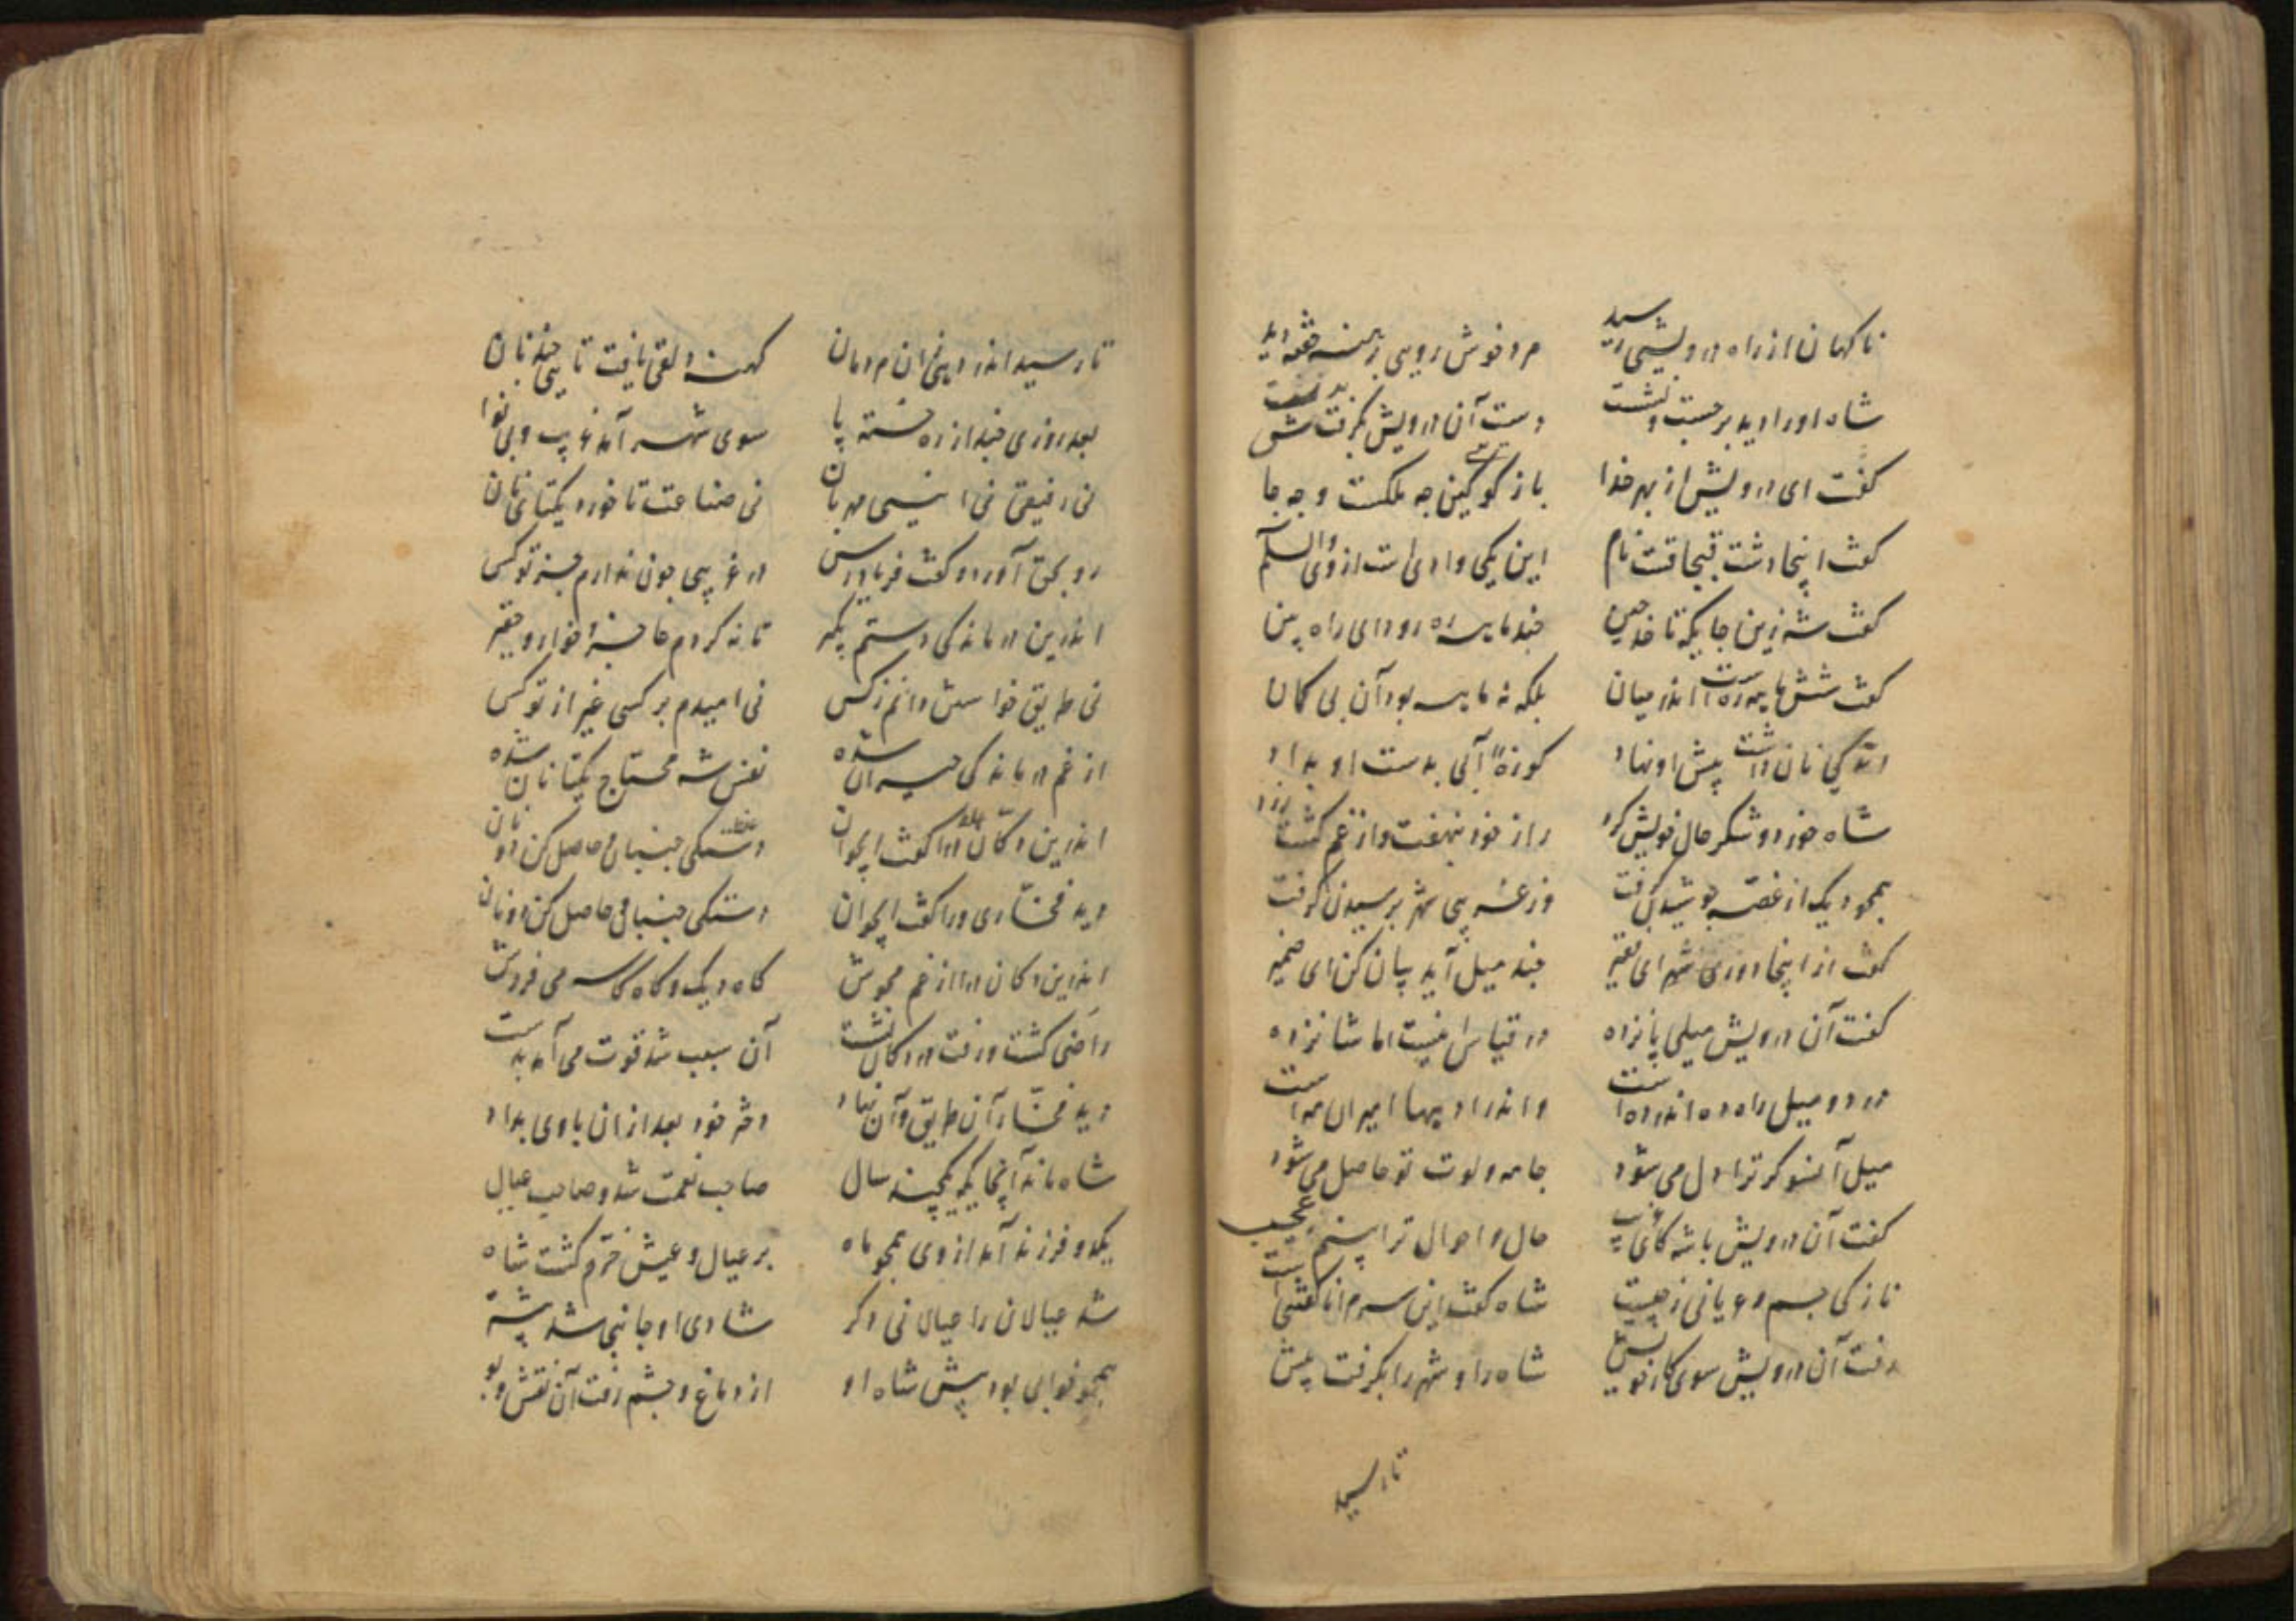 ناکهان از راه درویشی رسید مرد خوش رویی
شاه او را دید برجست و نشست دست آن درویش بگرفت
کفت ای درویش از بهر خدا باز کو کین چه ملکست و چه جا
کفت اینجا دشت قبچاقست نام این یکی وادی است از وی والسلام
کفت شه زین جایکه تا چند ماهه ره رو دای راه بین
کفت شش ماهه رهست اندر میان بلکه نه ماهه بود آن بی کمان
نان داشت پیش او نهاد کوزهٔ آبی بدست او بداد
شاه خورد و شکر حال خویش کرد راز خود بنهفت و از غم کشت زرد
همچو دیک از غصه جوشیدن کرفت وز پی شهر پرسیدن کرفت
کفت از اینجا دوری شهر ای فقیر چند میل آید بیان کن ای
کفت آن درویش میلی پانزده در قیاس نیست اما شانزده
در دو میل راه ده اندر ده است واندر او پیها امیران مه است
میل آنسو کر ترا دل می شود جامه و لوت تو حاصل می شود
کفت آن درویش باشه کای غریب حال و احوال ترا بینم عجیب
نازکی جسم و عریانی ز چیست شاه کفت این سرم
رفت آن درویش سوی کار خویش شاه راه شهر را بکرفت پیش
تا رسید
تا رسید اندر دهی زان مردمان کهنه دلقی یافت تا نان
بعد روزی چند از ره خسته پا سوی شهر آمد غریب و بی نوا
نی رفیقی نی انیسی مهربان نی صناعت تا خورد یکتای نان
رو بحق آورد و کفت فریادرس در غریبی چون ندارم جز تو کس
اندرین درماندکی دستم بکیر تا نه کردم عاجز و خوار و حقیر
نی طریق خواستن دانم ز کس نی امیدم بر کسی غیر از تو کس
از غم درماندکی حیران شده نفس شه محتاج یکتا نان شده
اندرین دکان درا کفت ایجوان دستکی جنبان و حاصل کن دو نان
دید فخاری ورا کفت ایجوان دستکی جنبان و حاصل کن دو نان
اندرین دکان درا از غم مجوش کاه دیک و کاه کاسه می فروش
راضی کشت و رفت در دکان نشست آن سبب شد قوت می آمد بدست
دید فخار آن طریق و آن نهاد دختر خود بعد از آن با وی بداد
شاه ماند آنجایکه پنج سال صاحب نعمت شد و صاحب عیال
یکدو فرزند آمد از وی همچو ماه بر عیال و عیش خرم کشت شاه
شد عیالان را عیالانی دکر شادی او جانبی شد بیشتر
همچو خوابی بود پیش شاه او از دماغ و چشم رفت آن نقش و بو